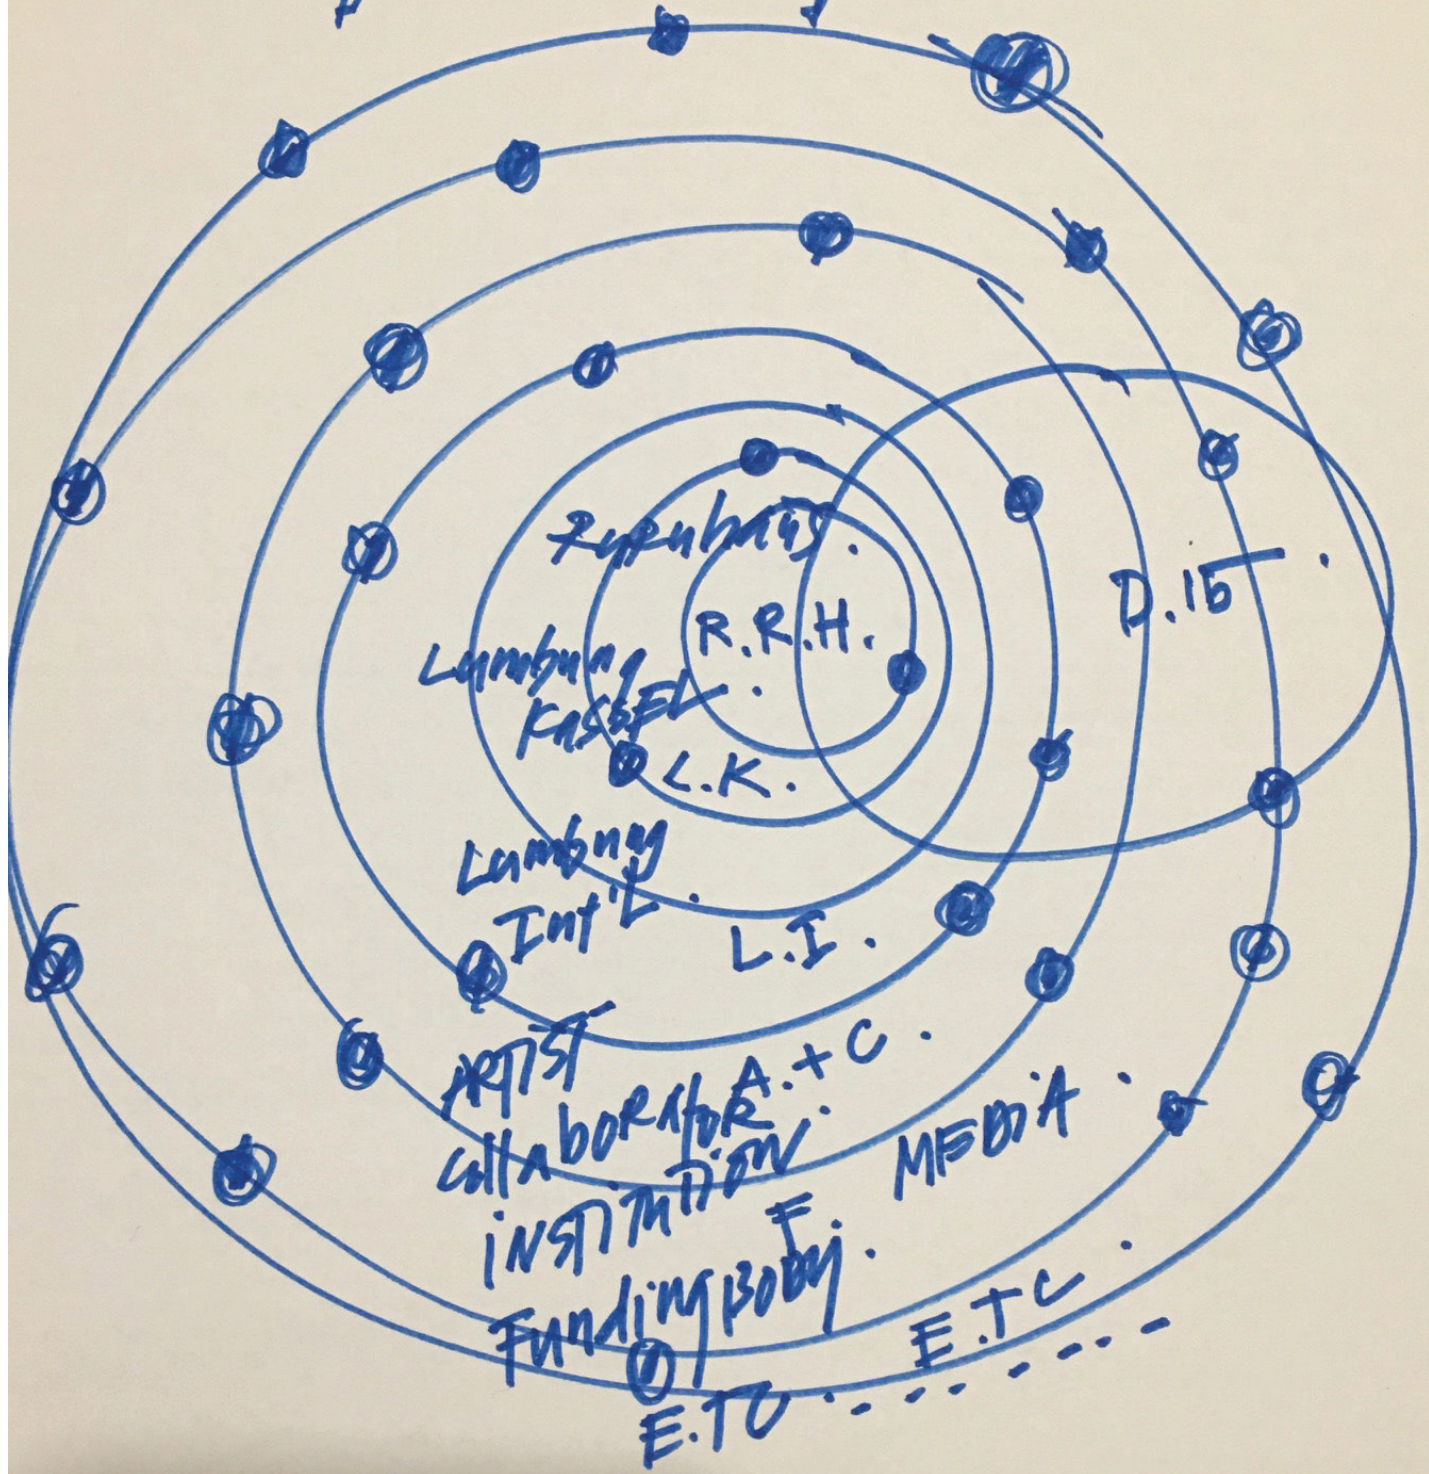 Ruruhaus.
R.R.H.
D.15.
Lumbung
KASSEL.
L.K.
Lumbung
Int'l.
L.I.
ARTIST
A.+C.
collaborator.
MEDIA.
INSTITUTION
F
Funding BODY.
E.T.C.
E.TC.